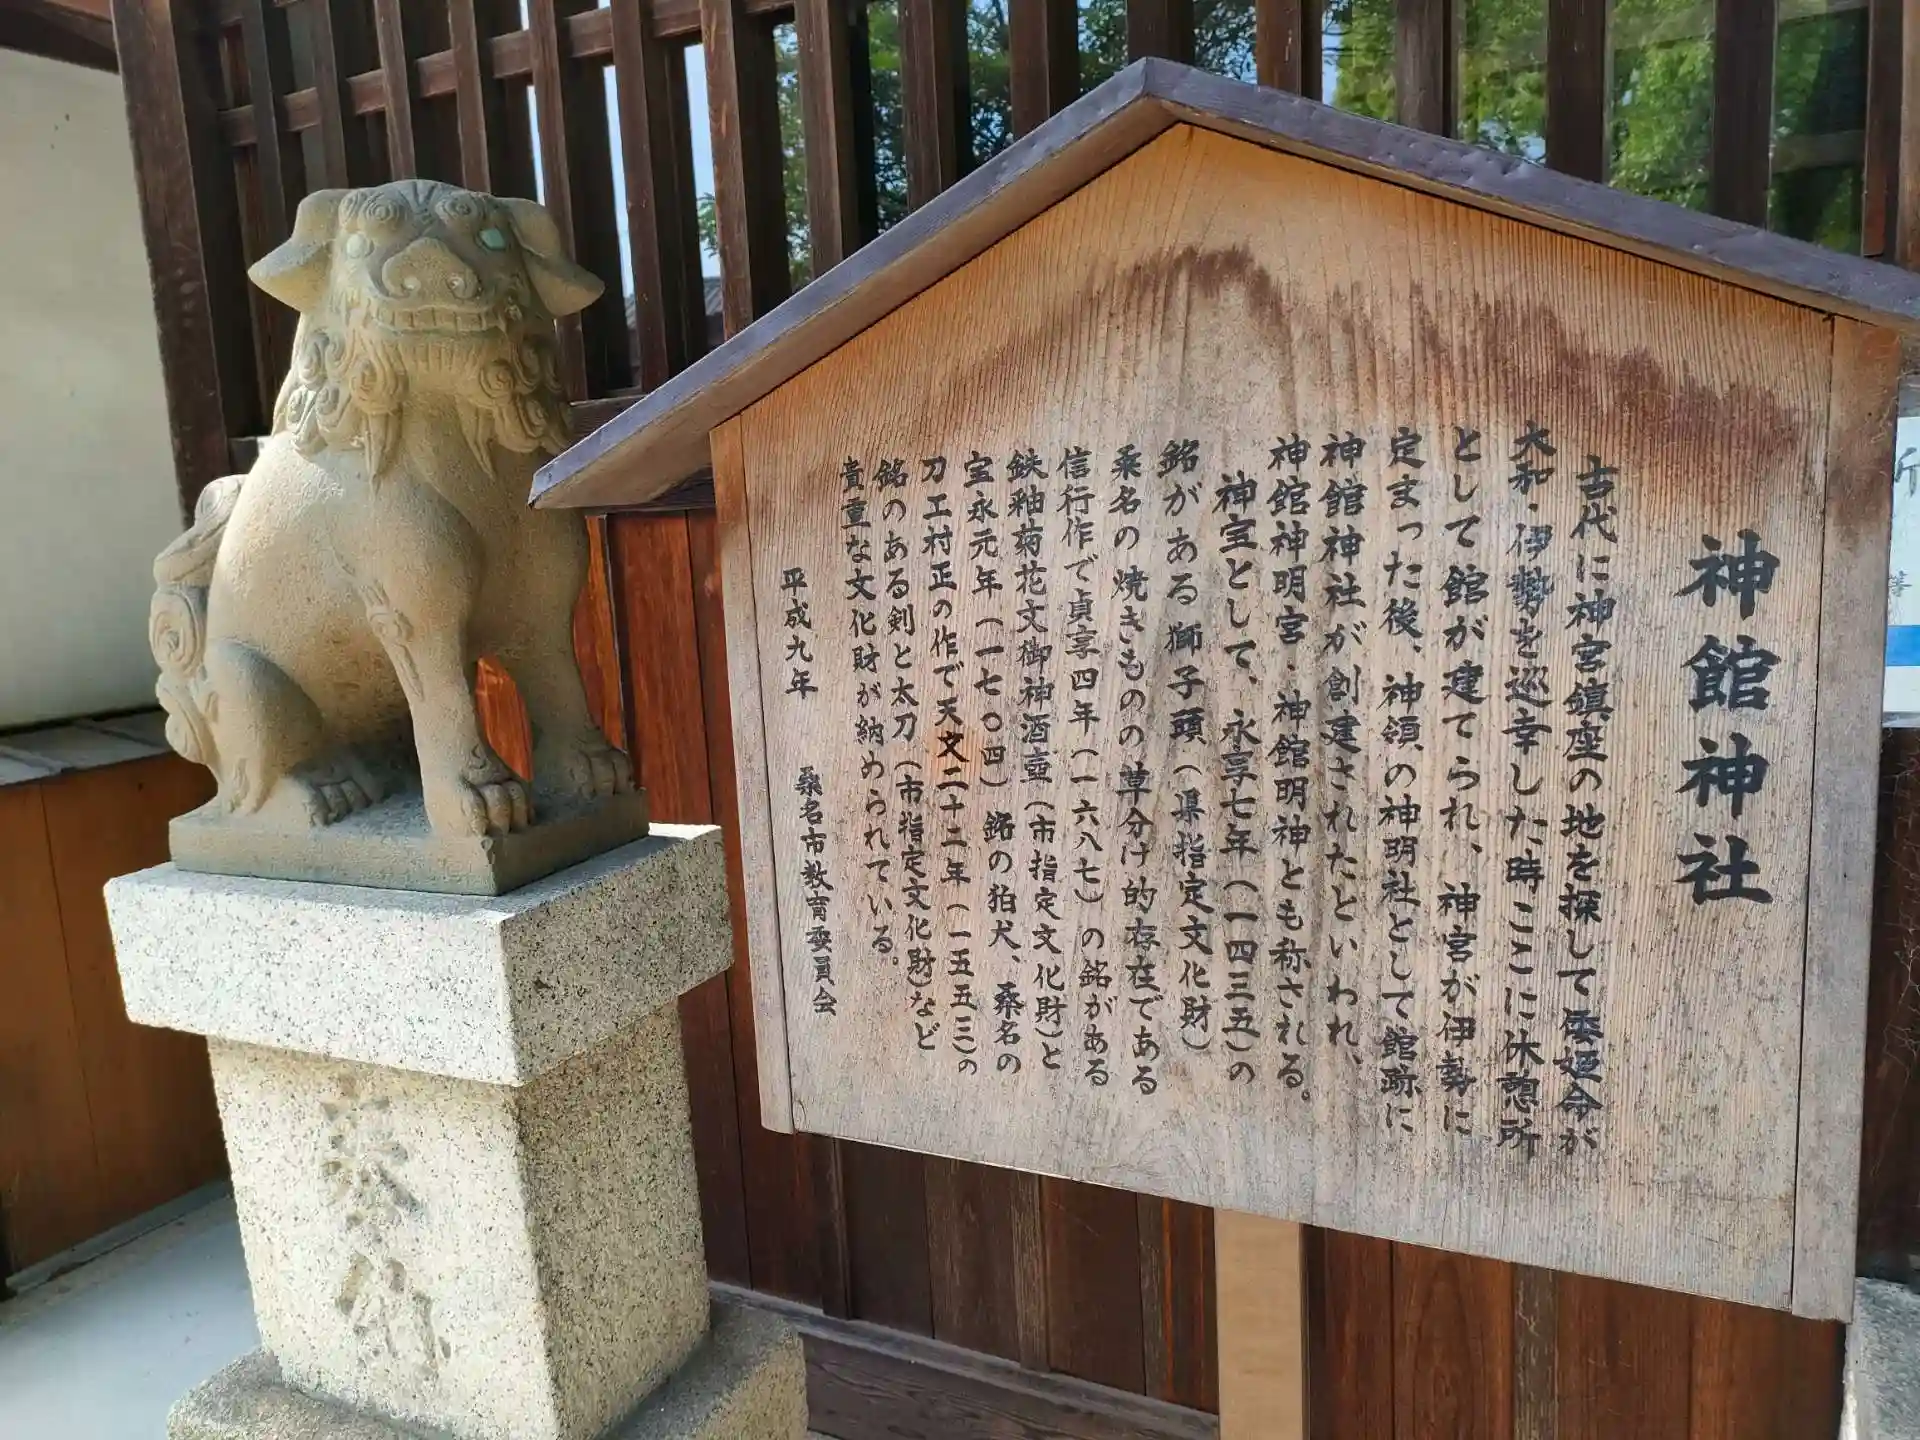 神館神社
古代に神宮鎮座の地を探して倭姫命が
大和・伊勢を巡幸した時ここに休憩所
として館が建てられ、神宮が伊勢に
定まった後、神領の神明社として館跡に
神館神社が創建されたといわれ、
神館神明宮・神館明神とも称される。
神宝として、永享七年(一四三五)の
銘がある獅子頭(県指定文化財)
桑名の焼きものの草分け的存在である
信行作で貞享四年(一六八七)の銘がある
鉄釉菊花文御神酒壺(市指定文化財)と
宝永元年(一七〇四)銘の狛犬、桑名の
刀工村正の作で天文二十二年(一五五三)の
銘のある剣と太刀(市指定文化財)など
貴重な文化財が納められている。
平成九年 桑名市教育委員会
奉納